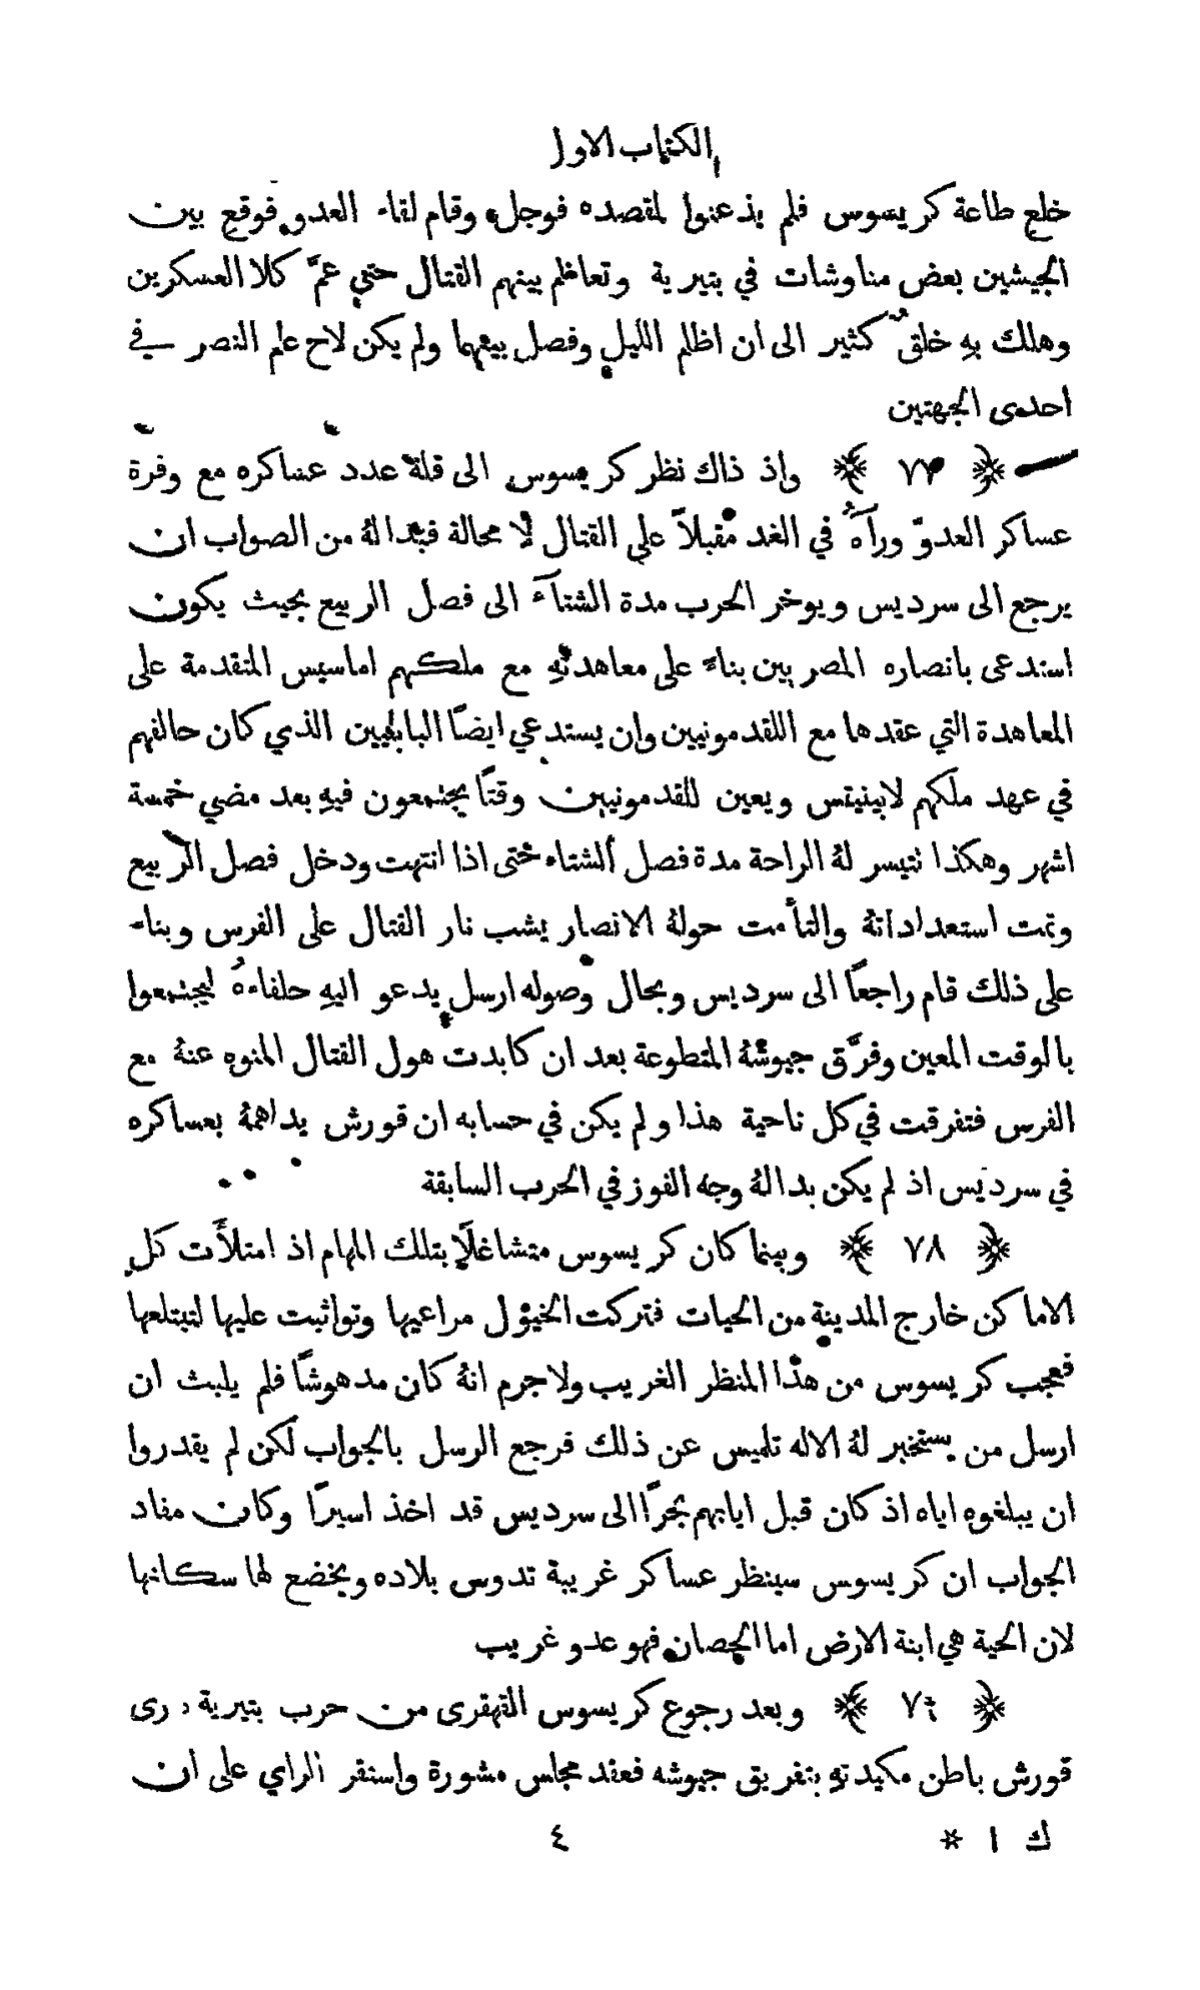 الكتاب الاول
خلع طاعة كريسوس فلم يذعنوا لمقصده فوجل وقام لقاء العدو فوقع بين
الجيشين بعض مناوشات في بتيرية وتعاظم بينهم القتال حتى عمَّ كلا العسكرين
وهلك بهِ خلقٌ كثير الى ان اظلم الليل وفصل بينهما ولم يكن لاح علم النصر في
احدى الجهتين
﴿ ٧٧ ﴾ واذ ذاك نظر كريسوس الى قلة عدد عساكره مع وفرة
عساكر العدوّ ورآهُ في الغد مقبلاً على القتال لا محالة فبدا لهُ من الصواب ان
يرجع الى سرديس ويوخر الحرب مدة الشتآء الى فصل الربيع بحيث يكون
استدعى بانصاره المصريين بناءً على معاهدتهِ مع ملكهم اماسيس المتقدمة على
المعاهدة التي عقدها مع اللقدمونيين وان يستدعي ايضًا البابليين الذي كان حالفهم
في عهد ملكهم لابينيتس ويعين للقدمونيين وقتًا يجتمعون فيهِ بعد مضي خمسة
اشهر وهكذا تتيسر لهُ الراحة مدة فصل الشتاء حتى اذا انتهت ودخل فصل الربيع
وتمت استعداداتهُ والتأمت حولهُ الانصار يشب نار القتال على الفرس وبناء
على ذلك قام راجعًا الى سرديس وبحال وصوله ارسل يدعو اليهِ حلفاءهُ ليجتمعوا
بالوقت المعين وفرَّق جيوشهُ المتطوعة بعد ان كابدت هول القتال المنوه عنهُ مع
الفرس فتفرقت في كل ناحية هذا ولم يكن في حسابه ان قورش يداهمهُ بعساكره
في سرديس اذ لم يكن بدا لهُ وجه الفوز في الحرب السابقة
﴿ ٧٨ ﴾ وبينما كان كريسوس متشاغلًا بتلك المهام اذ امتلأت كل
الاماكن خارج المدينة من الحيات فتركت الخيؤل مراعيها وتواثبت عليها لتبتلعها
فعجب كريسوس من هذا المنظر الغريب ولاجرم انهُ كان مدهوشًا فلم يلبث ان
ارسل من يستخبر لهُ الاله تلميس عن ذلك فرجع الرسل بالجواب لكن لم يقدروا
ان يبلغوه اياه اذ كان قبل ايابهم بحرًا الى سرديس قد اخذ اسيرًا وكان مفاد
الجواب ان كريسوس سينظر عساكر غريبة تدوس بلاده ويخضع لها سكانها
لان الحية هي ابنة الارض اما الحصان فهو عدو غريب
﴿ ٧٩ ﴾ وبعد رجوع كريسوس القهقرى من حرب بتيرية درى
قورش باطن مكيدتهِ بتفريق جيوشه فعقد مجلس مشورة واستقر الراي على ان
ك ١ * ٤